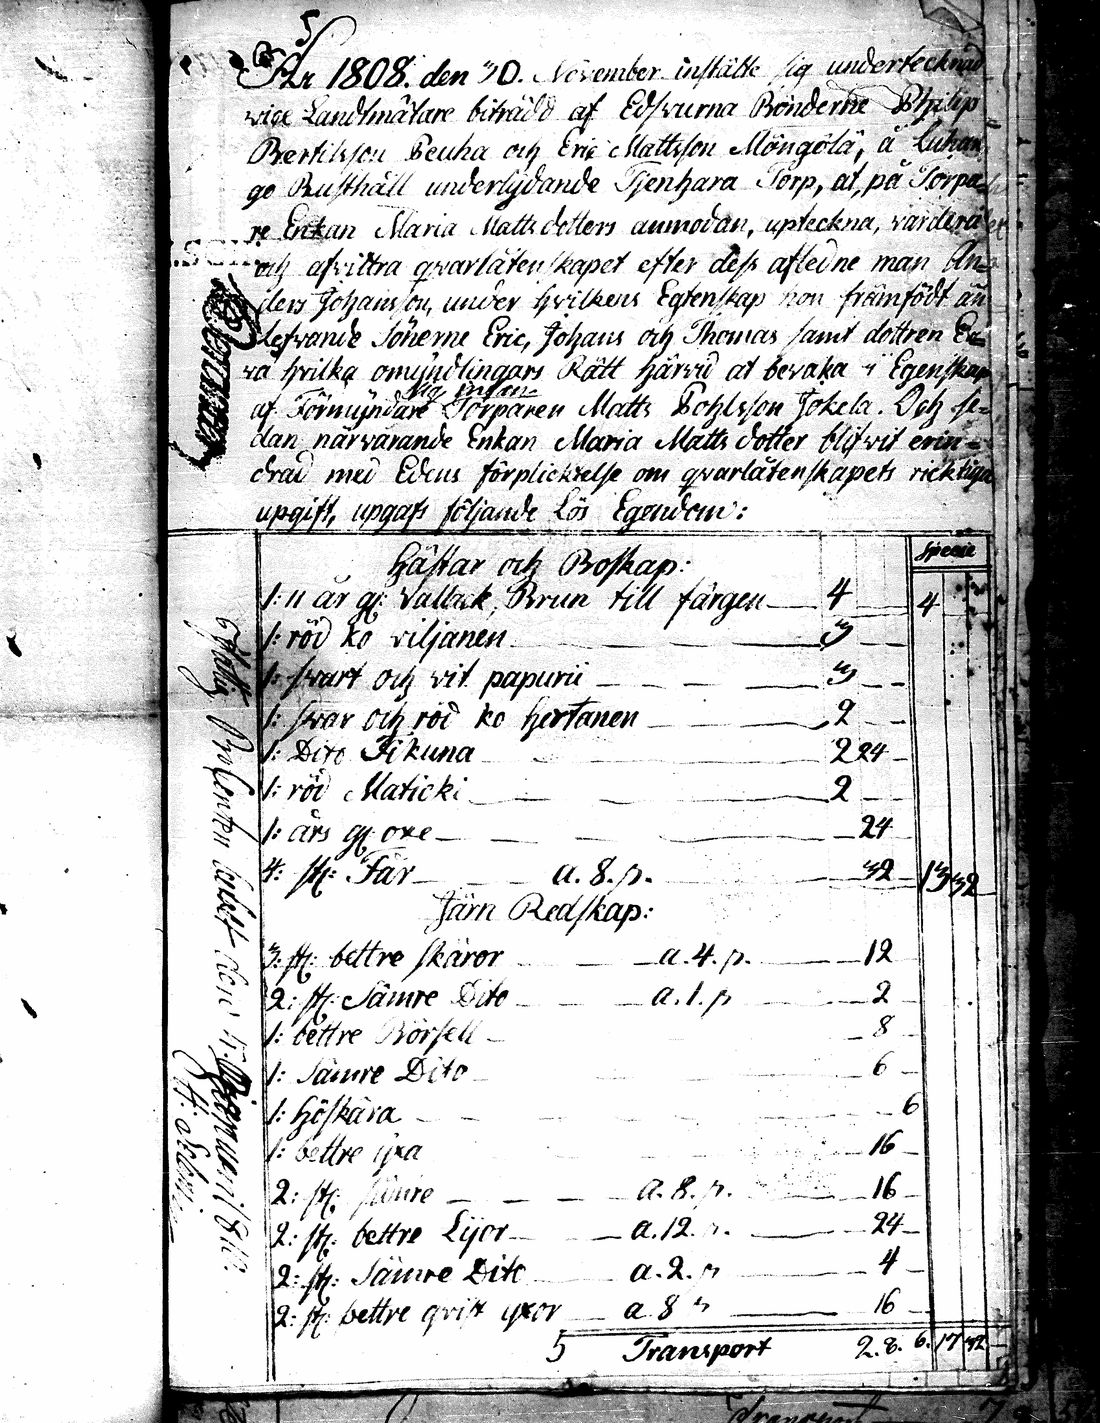 5
År 1808. den 30. November instälte sig undertecknad
vice Landtmätare biträdd af Edsvurna Bönderne Philip
Bertilsson Peuha och Eric Mattsson Möngölä, å Luhan
go Rusthåll underlydande Tjenhara Torp, at, på Torpa
re Enkan Maria Mattsdotters anmodan, upteckna, värdera
och afvittra qvarlåtenskapet efter dess afledne man An=
ders Johansson, under hvilkens Egtenskap hon framfödt än
lefvande Sönerne Eric, Johans och Thomas samt dottren E
va hvilka omyndlingars Rätt härvid at bevaka i Egenskap
af Förmyndare Torparen Matts Pohlsson Jokela. Och se=
dan närvarande Enkan Maria Mattsdotter blifvit erin=
drad med Edens förplicktelse om qvarlåtenskapets ricktiga
upgift, upgafs följande Lös Egendom:
Specie
Hästar och Boskap:
1: 11 år g: Vallack, Brun till färgen 4 4
1: röd ko viljanen 3
1: svart och vit papurii 3
1: svar och röd ko hertanen 2
1: Dito Tikuna 2 24
1: röd Maticki 2
1: års g: oxe 24
4: st: Får a. 8. p. 32 13 32
Järn Redskap:
3: st: bettre skäror a. 4. p. 12
2: st: Sämre Dito a. 1. p 2
1: bettre Börsell 8
1: Sämre Dito 6
1: höskära 6
1: bettre yxa 16
2: st: sämre a. 8. p. 16
2: st: bettre Lijor a. 12. p. 24
2: st: Sämre Dito a. 2. p 4
2: st: bettre qvist yxor a 8 p 16
5 Transport 2. 8. 6. 17 32